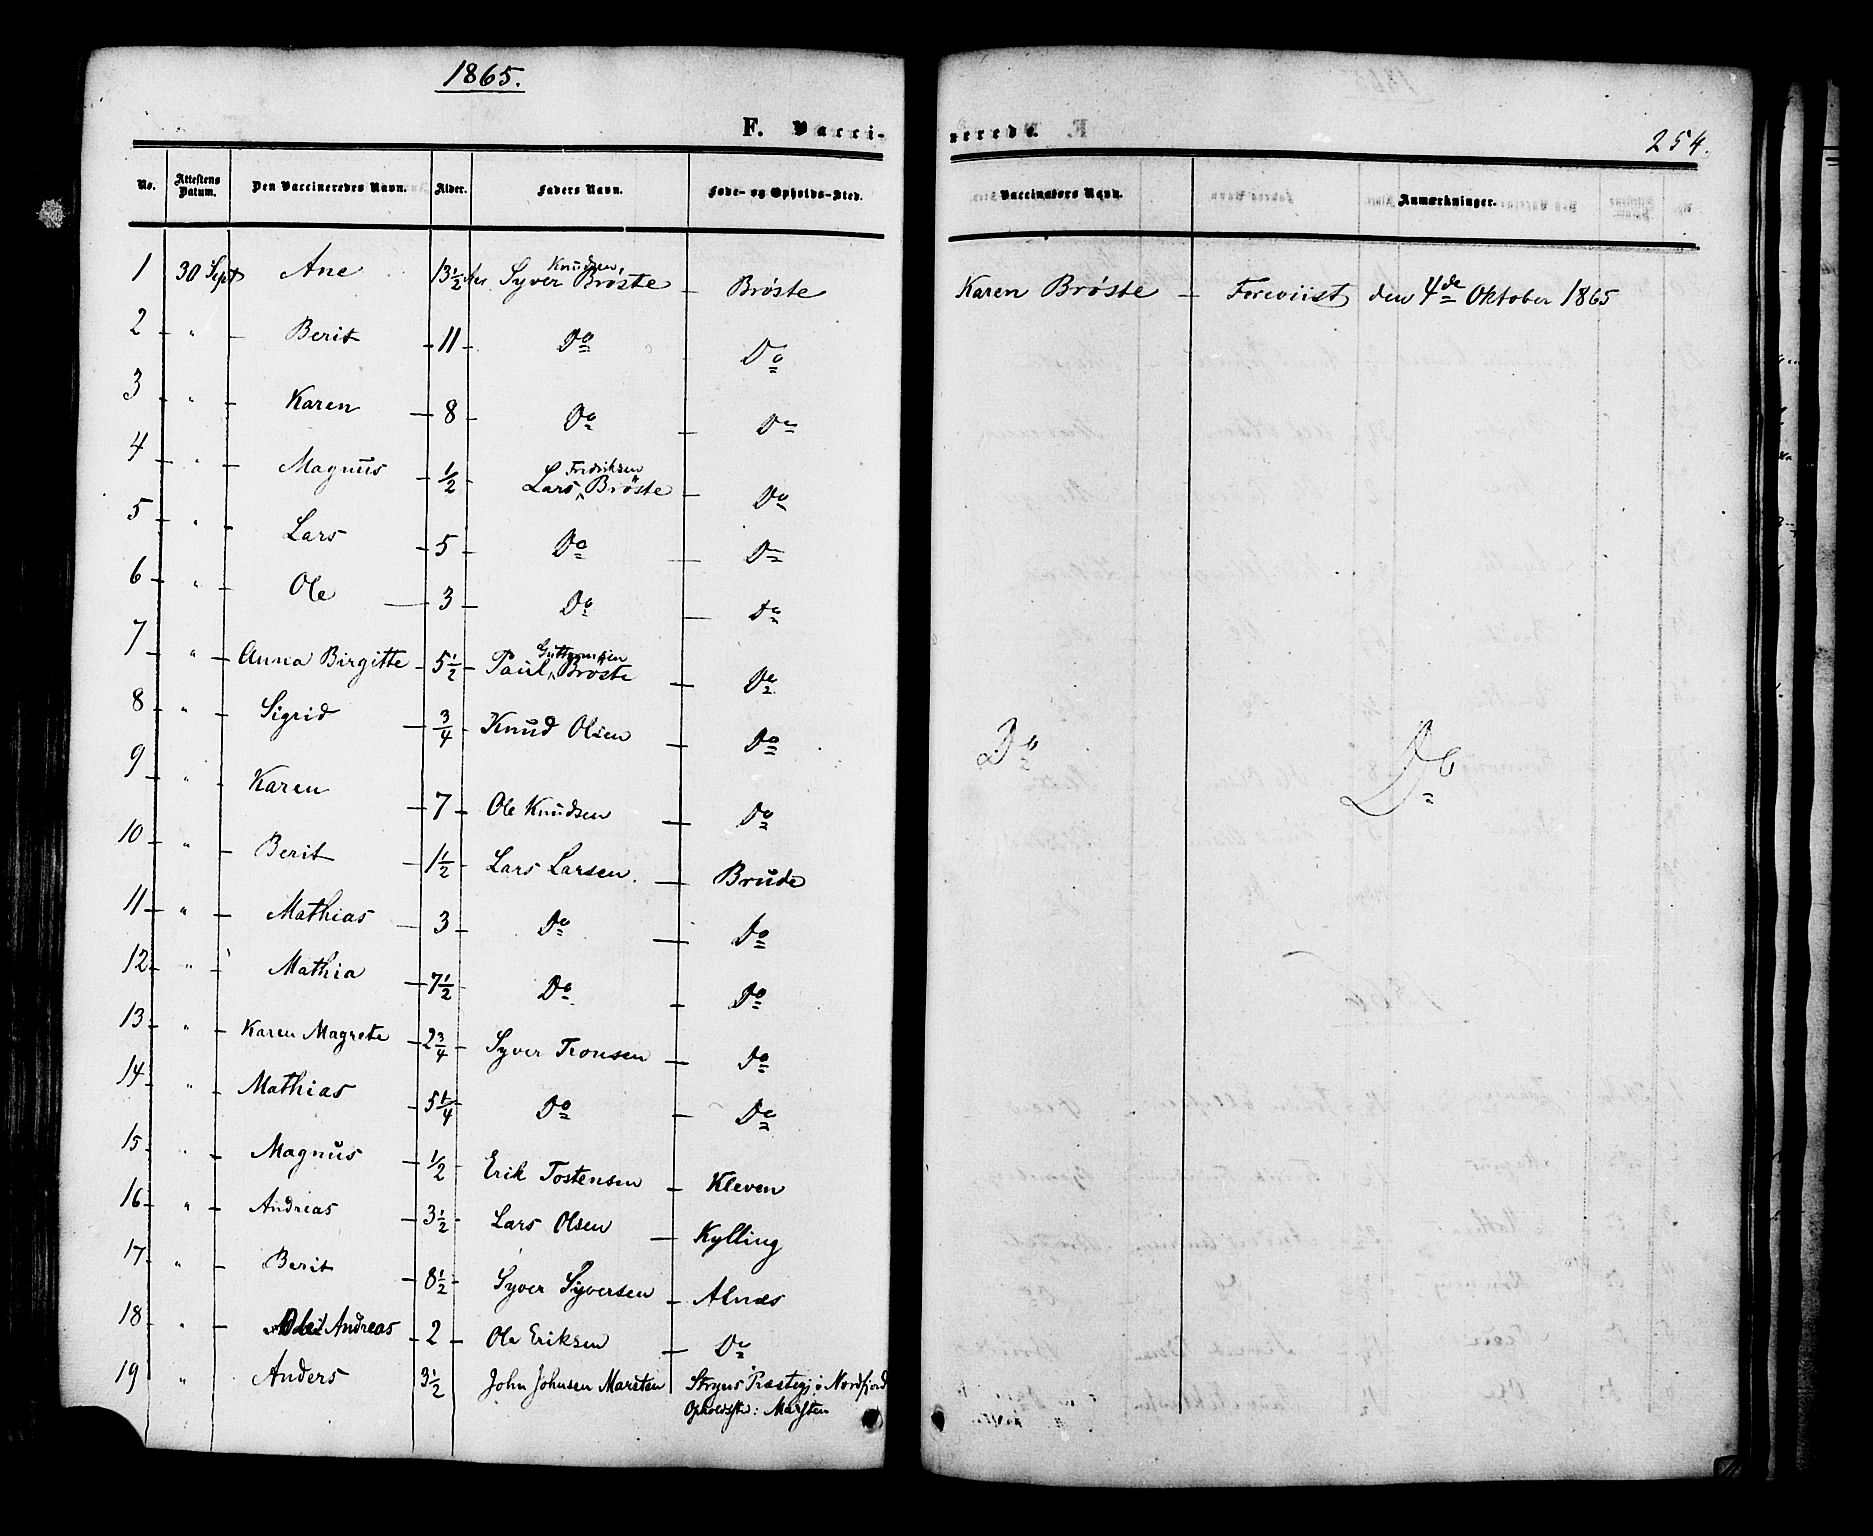 1865.
F. Vacci-
nerede.
254.
No. Attestens Datum. Den Vaccineredes Navn. Alder. Faders Navn. Føde- og Opholds-Sted. Vaccinators Navn. Anmærkninger.
1 30 Sept Ane 13½ Aar Syver Knudsen, Brøste - Brøste Karen Brøste - Foreviist den 4de Oktober 1865
2 " - Berit - 11 - Do - Do
3 " - Karen - 8 - Do - Do
4 - " - Magnus - ½ - Lars Fredriksen Brøste - Do
5 - " - Lars - 5 - Do - Do
6 - " - Ole - 3 - Do - Do
7 - " - Anna Birgitte - 5½ - Paul Guttormsen Brøste - Do
8 - " - Sigrid - ¾ - Knud Olsen - Do Do Do
9 - " - Karen - 7 - Ole Knudsen - Do
10 - " - Berit - 1½ - Lars Larsen - Brude
11 - " - Mathias - 3 - Do - Do
12 - " - Mathia - 7½ - Do - Do
13 - " - Karen Magrete - 2¾ - Syver Tronsen - Do
14 - " - Mathias - 5¼ - Do - Do
15 - " - Magnus - ½ - Erik Tostensen - Kleven
16 - " - Andreas - 3½ - Lars Olsen - Kylling
17 - " - Berit - 8½ - Syver Syversen - Alnæs
18 - " - Andreas - 2 - Ole Eriksen - Do
19 " Anders 3½ John Johnsen Marsten Stryns Præstegj. i Nordfjord
Opholdsst: Marsten